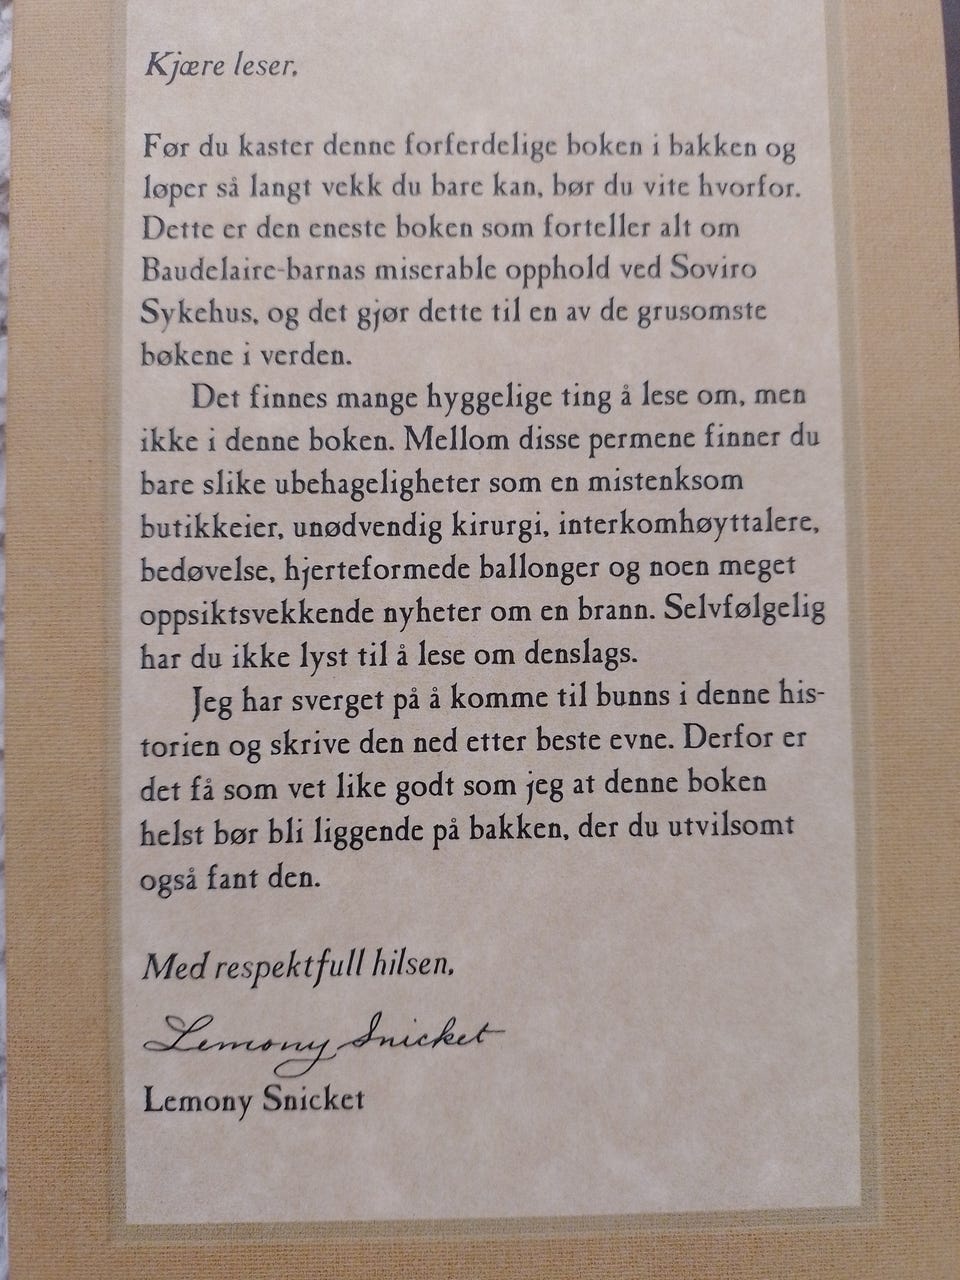 Kjære leser,
Før du kaster denne forferdelige boken i bakken og
løper så langt vekk du bare kan, bør du vite hvorfor.
Dette er den eneste boken som forteller alt om
Baudelaire-barnas miserable opphold ved Soviro
Sykehus, og det gjør dette til en av de grusomste
bøkene i verden.
Det finnes mange hyggelige ting å lese om, men
ikke i denne boken. Mellom disse permene finner du
bare slike ubehageligheter som en mistenksom
butikkeier, unødvendig kirurgi, interkomhøyttalere,
bedøvelse, hjerteformede ballonger og noen meget
oppsiktsvekkende nyheter om en brann. Selvfølgelig
har du ikke lyst til å lese om denslags.
Jeg har sverget på å komme til bunns i denne his-
torien og skrive den ned etter beste evne. Derfor er
det få som vet like godt som jeg at denne boken
helst bør bli liggende på bakken, der du utvilsomt
også fant den.
Med respektfull hilsen,
Lemony Snicket
Lemony Snicket